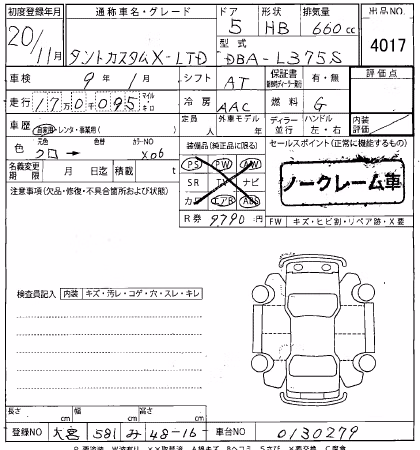 初度登録年月 通称車名・グレード ドア 形状 排気量 出品NO.
20/11月 タントカスタムX-LTD 5 HB 660cc 4017
型式 DBA-L375S
車検 9年1月 シフト AT 保証書 有・無 評価点
走行 17万0095 マイル キロ 冷房 AAC 燃料 G
車歴 自家用・レンタ・事業用( ) 定員 人 外車モデル 年 ディーラー 並行 ハンドル 左・右 内装評価
色 元色 クロ → 色替 カラーNO X06
装備品(純正品に限る) セールスポイント(正常に機能するもの)
PS PW AW
名義変更期限 月 日迄 積載 t
SR TV ナビ
カワ エアB ABS
ノークレーム車
注意事項(欠品・修復・不具合箇所および状態)
R券 9790円 FW キズ・ヒビ割・リペア跡・X要
検査員記入 内装 キズ・汚レ・コゲ・穴・スレ・キレ
長さ cm 幅 cm 高さ cm
登録NO 大宮 581 み 48-16 車台NO 0130279